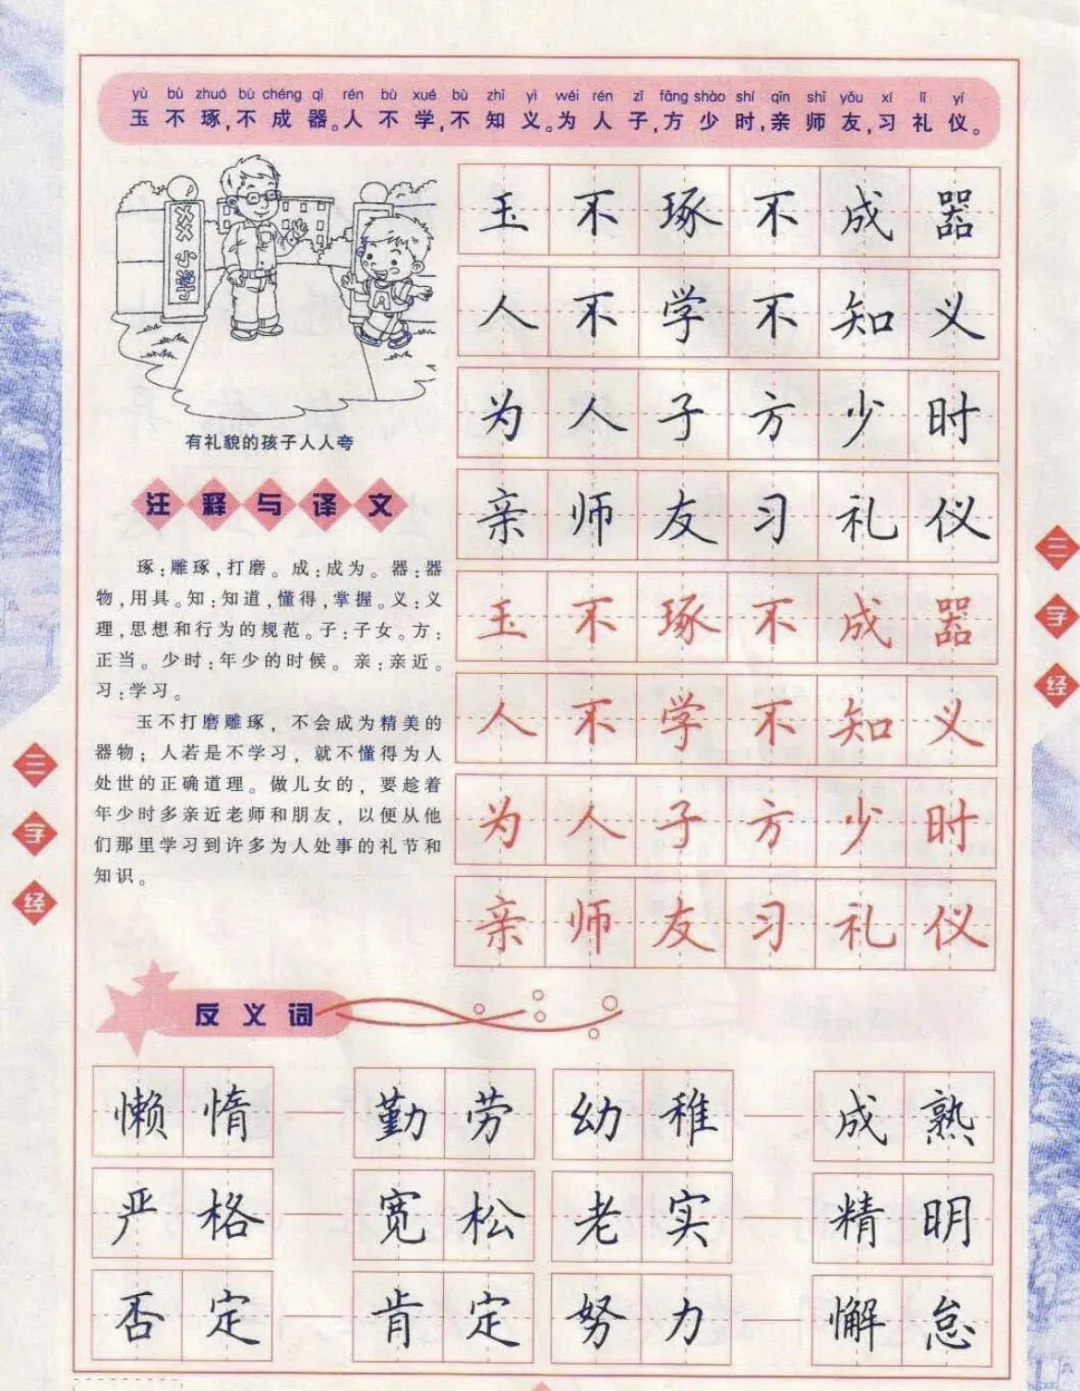 yù bù zhuó bù chéng qì rén bù xué bù zhī yì wéi rén zǐ fāng shào shí qīn shī yǒu xí lǐ yí
玉不琢,不成器。人不学,不知义。为人子,方少时,亲师友,习礼仪。
小学
有礼貌的孩子人人夸
注释与译文
琢:雕琢,打磨。成:成为。器:器
物,用具。知:知道,懂得,掌握。义:义
理,思想和行为的规范。子:子女。方:
正当。少时:年少的时候。亲:亲近。
习:学习。
玉不打磨雕琢，不会成为精美的
器物；人若是不学习，就不懂得为人
处世的正确道理。做儿女的，要趁着
年少时多亲近老师和朋友，以便从他
们那里学习到许多为人处事的礼节和
知识。
玉不琢不成器
人不学不知义
为人子方少时
亲师友习礼仪
玉不琢不成器
人不学不知义
为人子方少时
亲师友习礼仪
三字经
三字经
反义词
懒惰——勤劳 幼稚——成熟
严格——宽松 老实——精明
否定——肯定 努力——懈怠